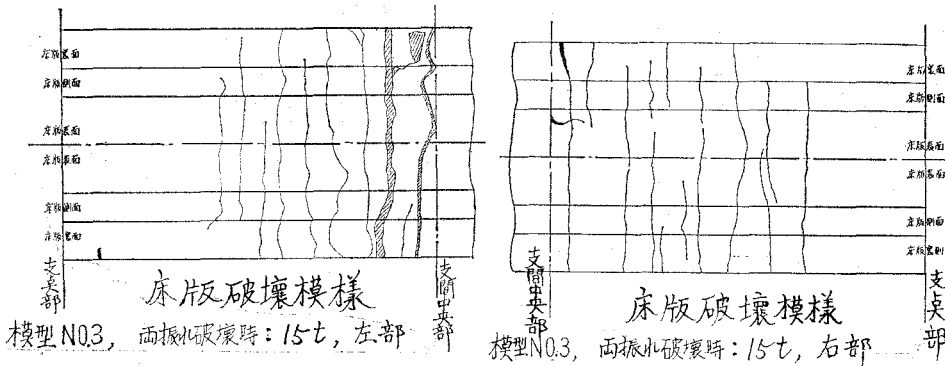 床版裏面
床版側面
床版表面
床版表面
床版側面
床版裏面
支点部
支間中央部
床版破壊模様
模型NO.3, 両振れ破壊時:15t, 左部
床版裏面
床版側面
床版表面
床版表面
床版側面
支間中央部
支点部
床版破壊模様
模型NO.3, 両振れ破壊時:15t, 右部